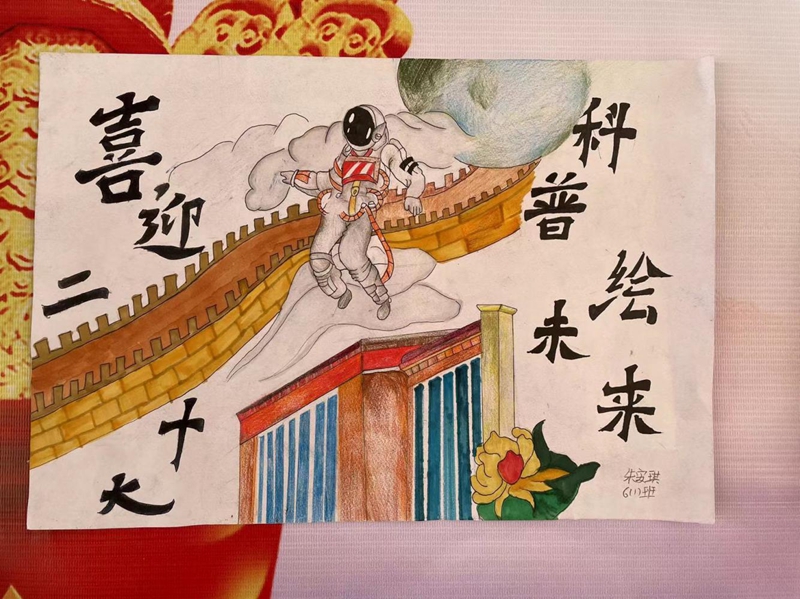 喜迎二十大
科普绘未来
朱安琪
6(1)班